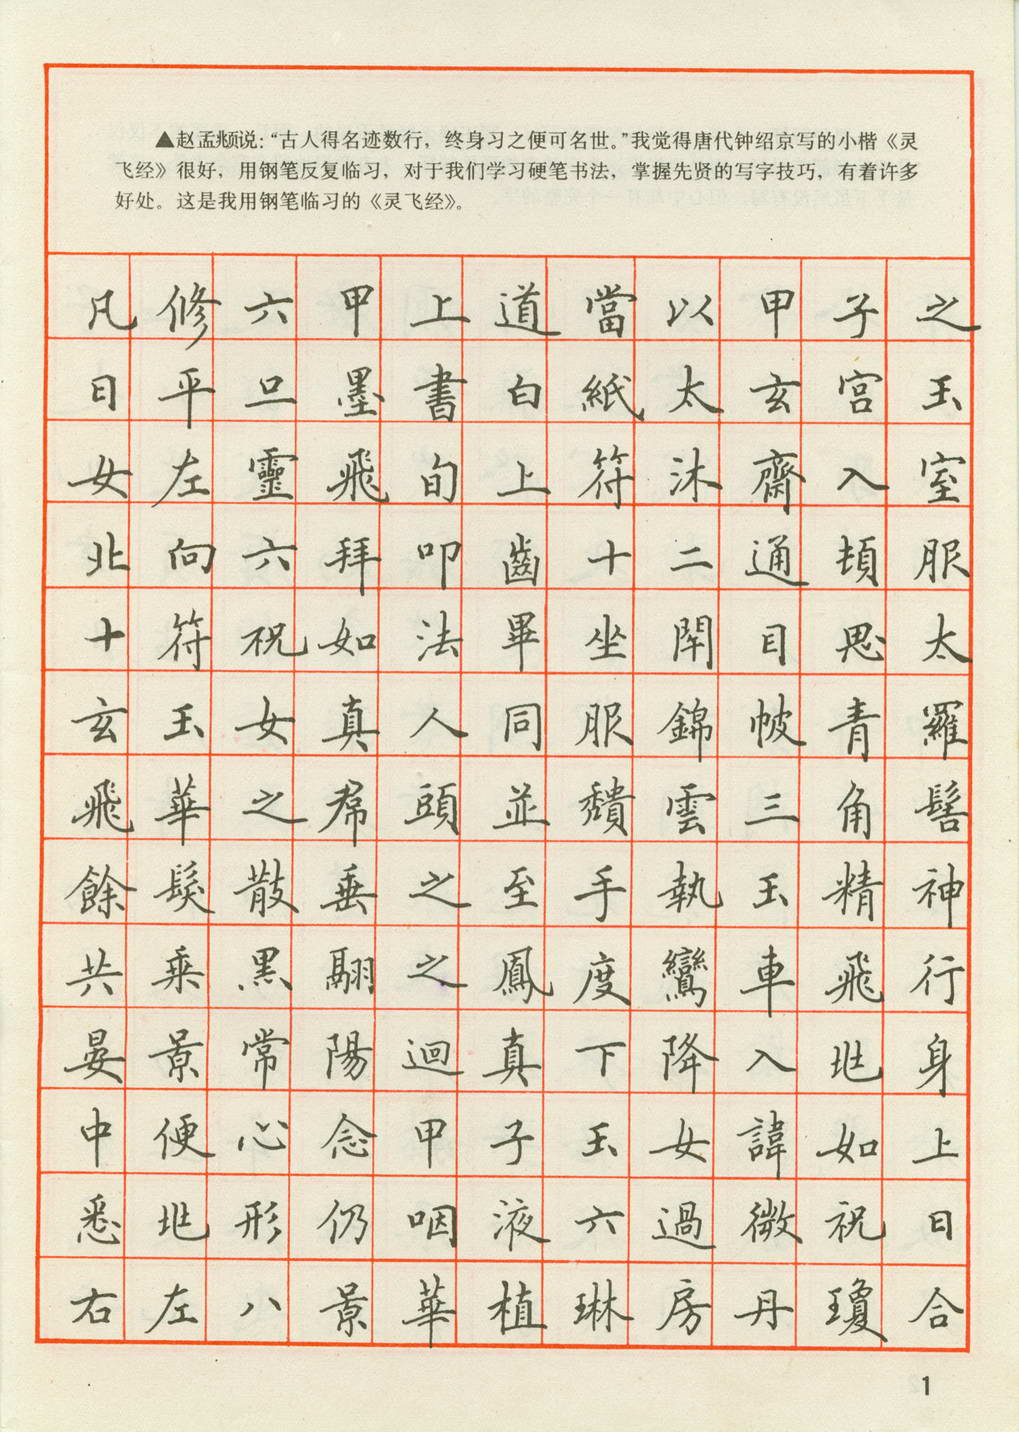 ▲赵孟𫖯说：“古人得名迹数行，终身习之便可名世。”我觉得唐代钟绍京写的小楷《灵
飞经》很好，用钢笔反复临习，对于我们学习硬笔书法，掌握先贤的写字技巧，有着许多
好处。这是我用钢笔临习的《灵飞经》。
凡修六甲上道當以甲子之
日平旦墨書白紙太玄宮玉
女左靈飛旬上符沐齋入室
北向六拜叩齒十二通頓服
十符祝如法畢坐閉目思太
玄玉女真人同服錦帔青羅
飛華之帬頭並頹雲三角髻
餘髮散垂之至手執玉精神
共乘黑翮之鳳度鸞車飛行
晏景常陽迴真下降入北身
中便心念甲子玉女諱如上
悉北形仍咽液六過微祝日
右左八景華植琳房丹瓊合
1